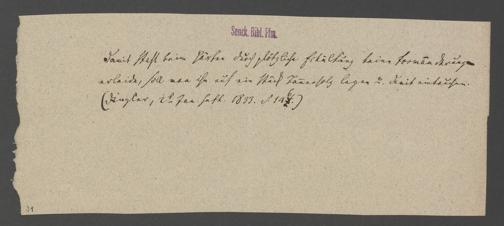 Senck. Bibl. Ffm.
Damit Stahl beim Härten durch plötzliche Erkältung keine Formänderungen
erleide, soll man ihn auf ein Stück Tannenholz legen u. damit eintauchen.
(Dingler, 2. Jan heft. 1855. S.
31